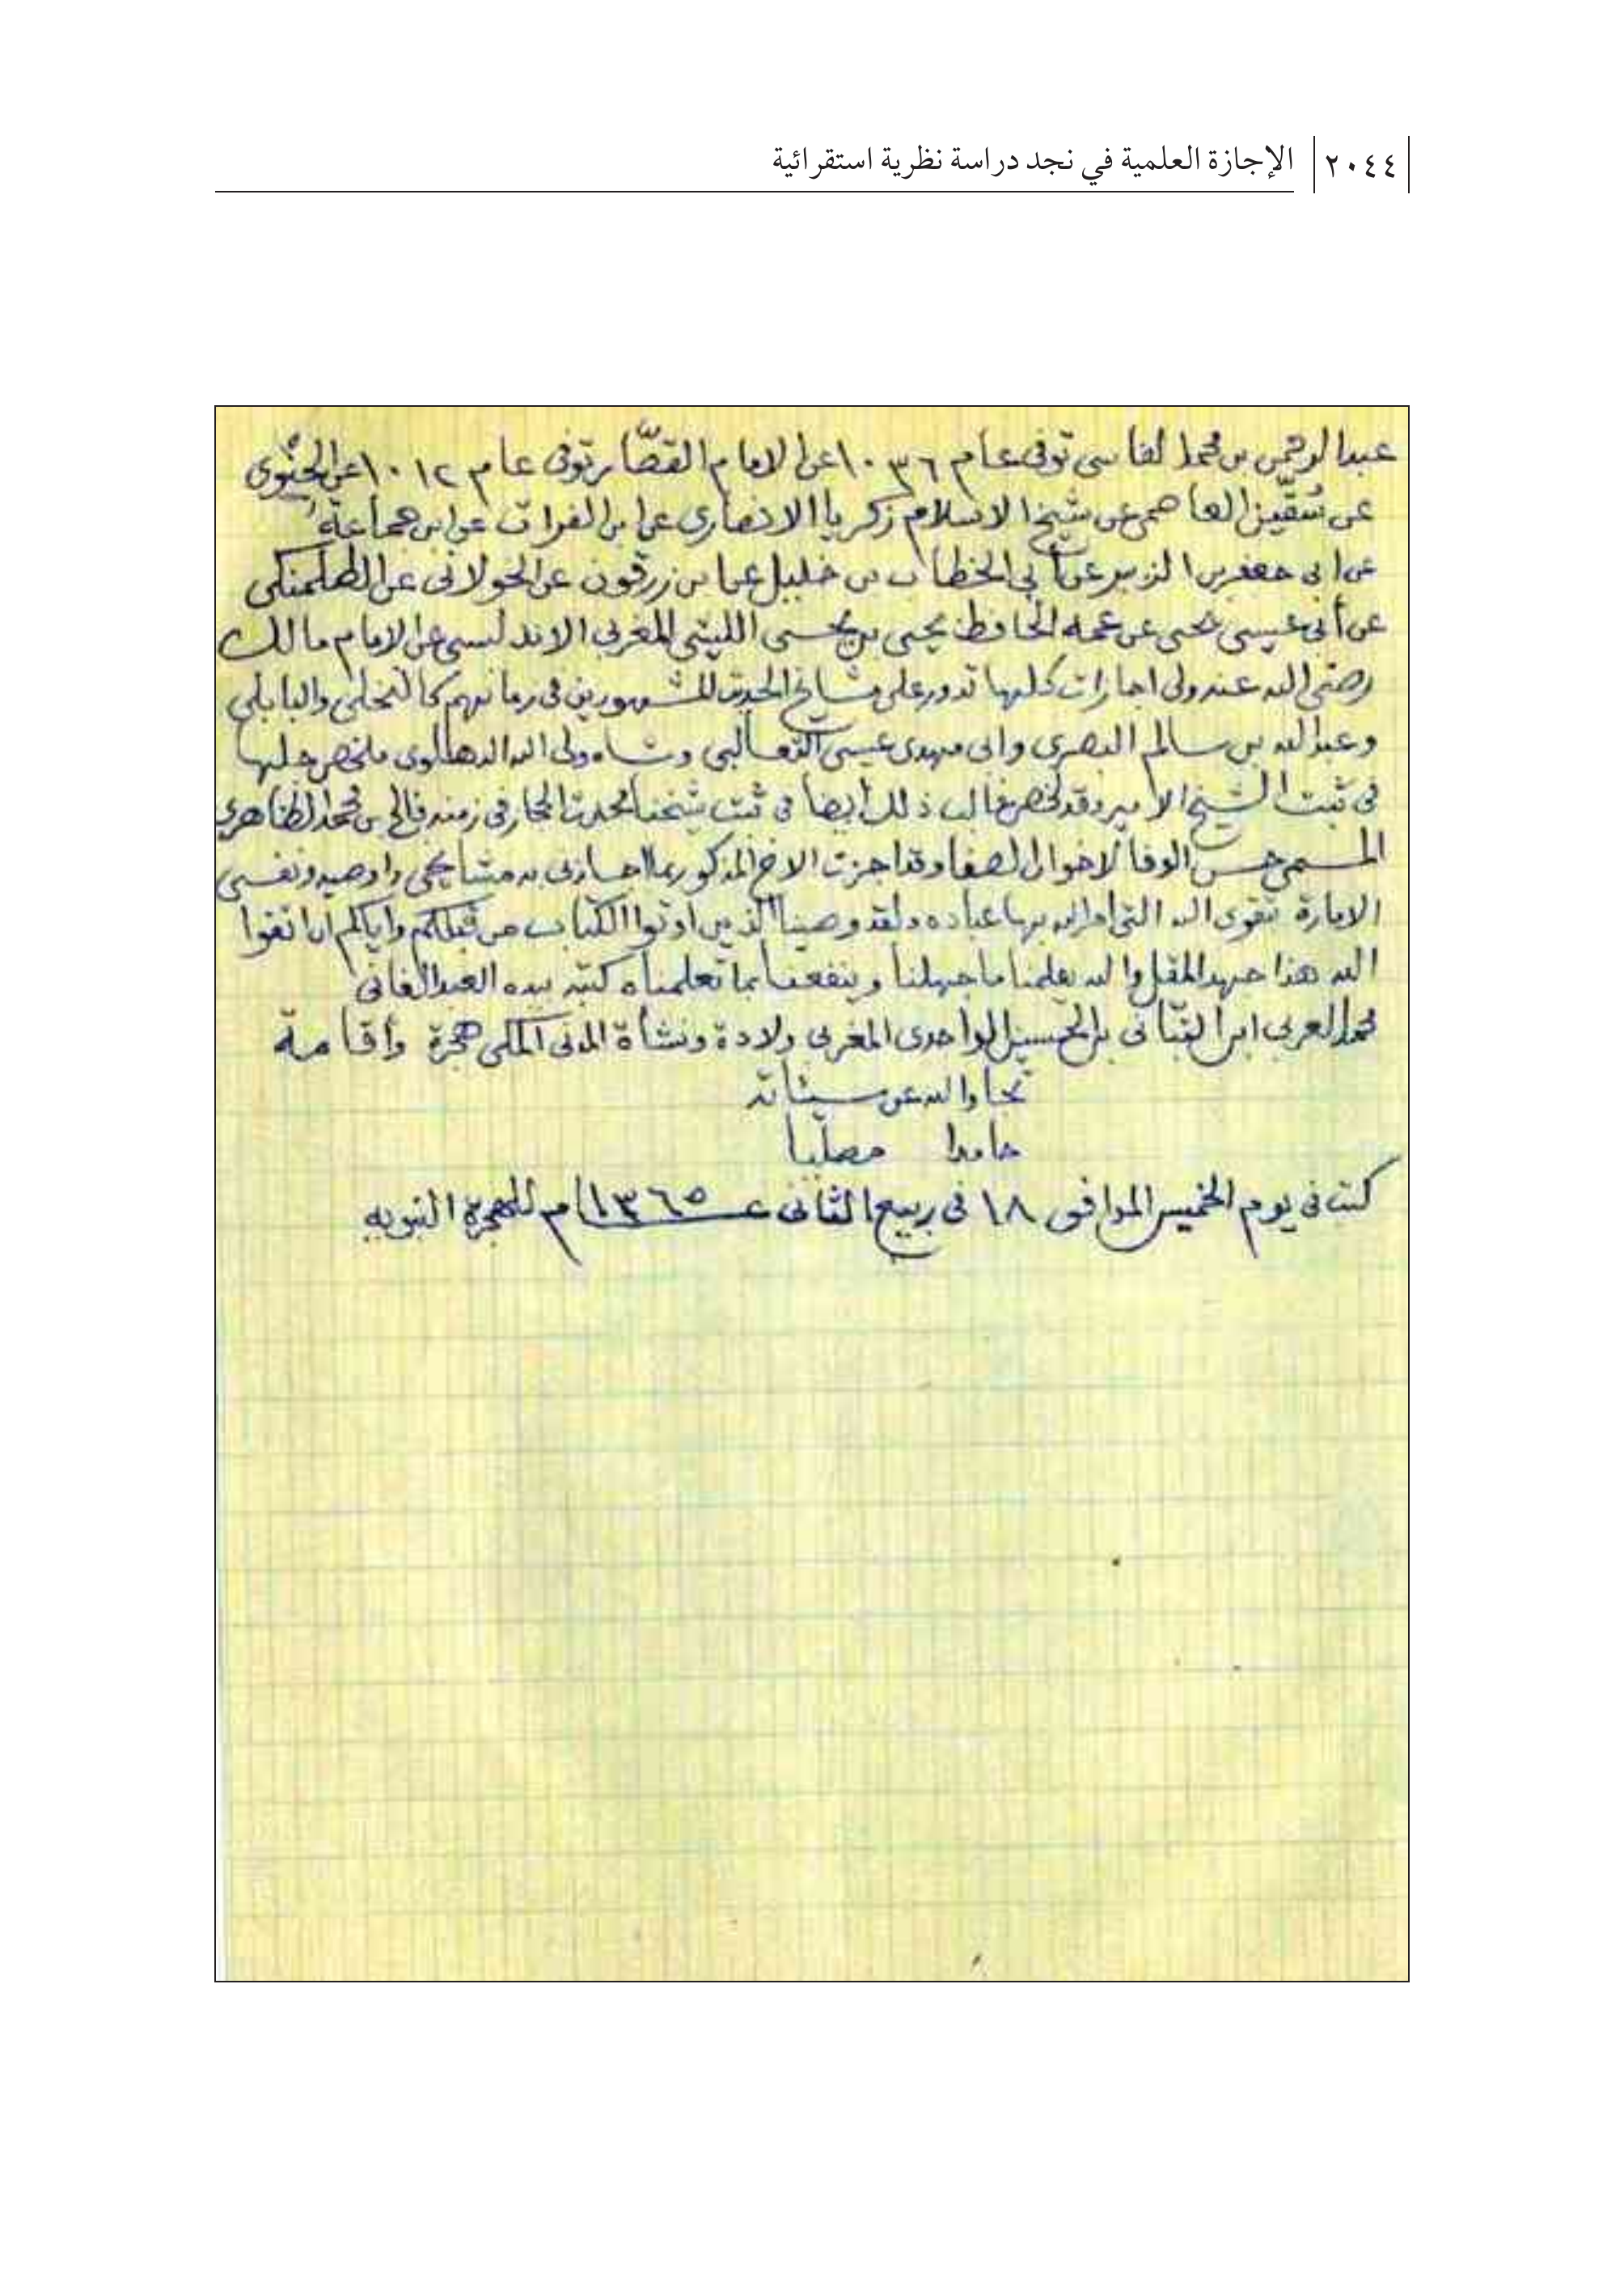 ٢٠٤٤ الإجازة العلمية في نجد دراسة نظرية استقرائية
عبد الرحمن بن محمد الفاسى توفى عام ١٠٣٦ عن الامام القصّار توفى عام ١٠١٢ عن
عن سُقَّين العاصمى عن شيخ الاسلام زكريا الانصارى عن ابن الفرات عن ابن جماعة
عن ابى جعفر بن الزبير عن أبى الخطاب بن خليل عن ابن زرقون عن الخولانى عن الطلمنكى
عن أبى عيسى يحيى عن عمه الحافظ يحيى بن يحيى الليثى المغربى الاندلسى عن الامام مالك
رضى الله عنه ولى اجازات كلها تدور على مشايخ الحديث المشهورين فى زمانهم كالنخلى والبابلى
وعبد الله بن سالم البصرى وابى مهدى عيسى الثعالبى وشاه ولى الله الدهلوى ملخص جلها
فى ثبت الشيخ الامير وقد لخص غالب ذلك أيضا فى ثبت شيخنا محدث الحجاز فى زمنه فالح بن محمد الظاهرى
المسمى حسن الوفا لاخوان الصفا وقد اجزت الاخ المذكور بما اجازنى به مشايخى واوصيه ونفسى
الامارة بتقوى الله التى امر الله بها عباده ولقد وصينا الذين اوتوا الكتاب من قبلكم واياكم ان اتقوا
الله هذا جهد المقل والله يعلمنا ما جهلنا وينفعنا بما تعلمناه كتبه بيده العبد الفانى
محمد العربى ابن التبّانى بن الحسين الواحدى المغربى ولادة ونشأة المدنى المكى هجرة وأقامة
تجاوز الله عن سيئاته
حامدا مصليا
كتب فى يوم الخميس الموافق ١٨ فى ربيع الثانى عـ١٣٦٥ـام للهجرة النبويه